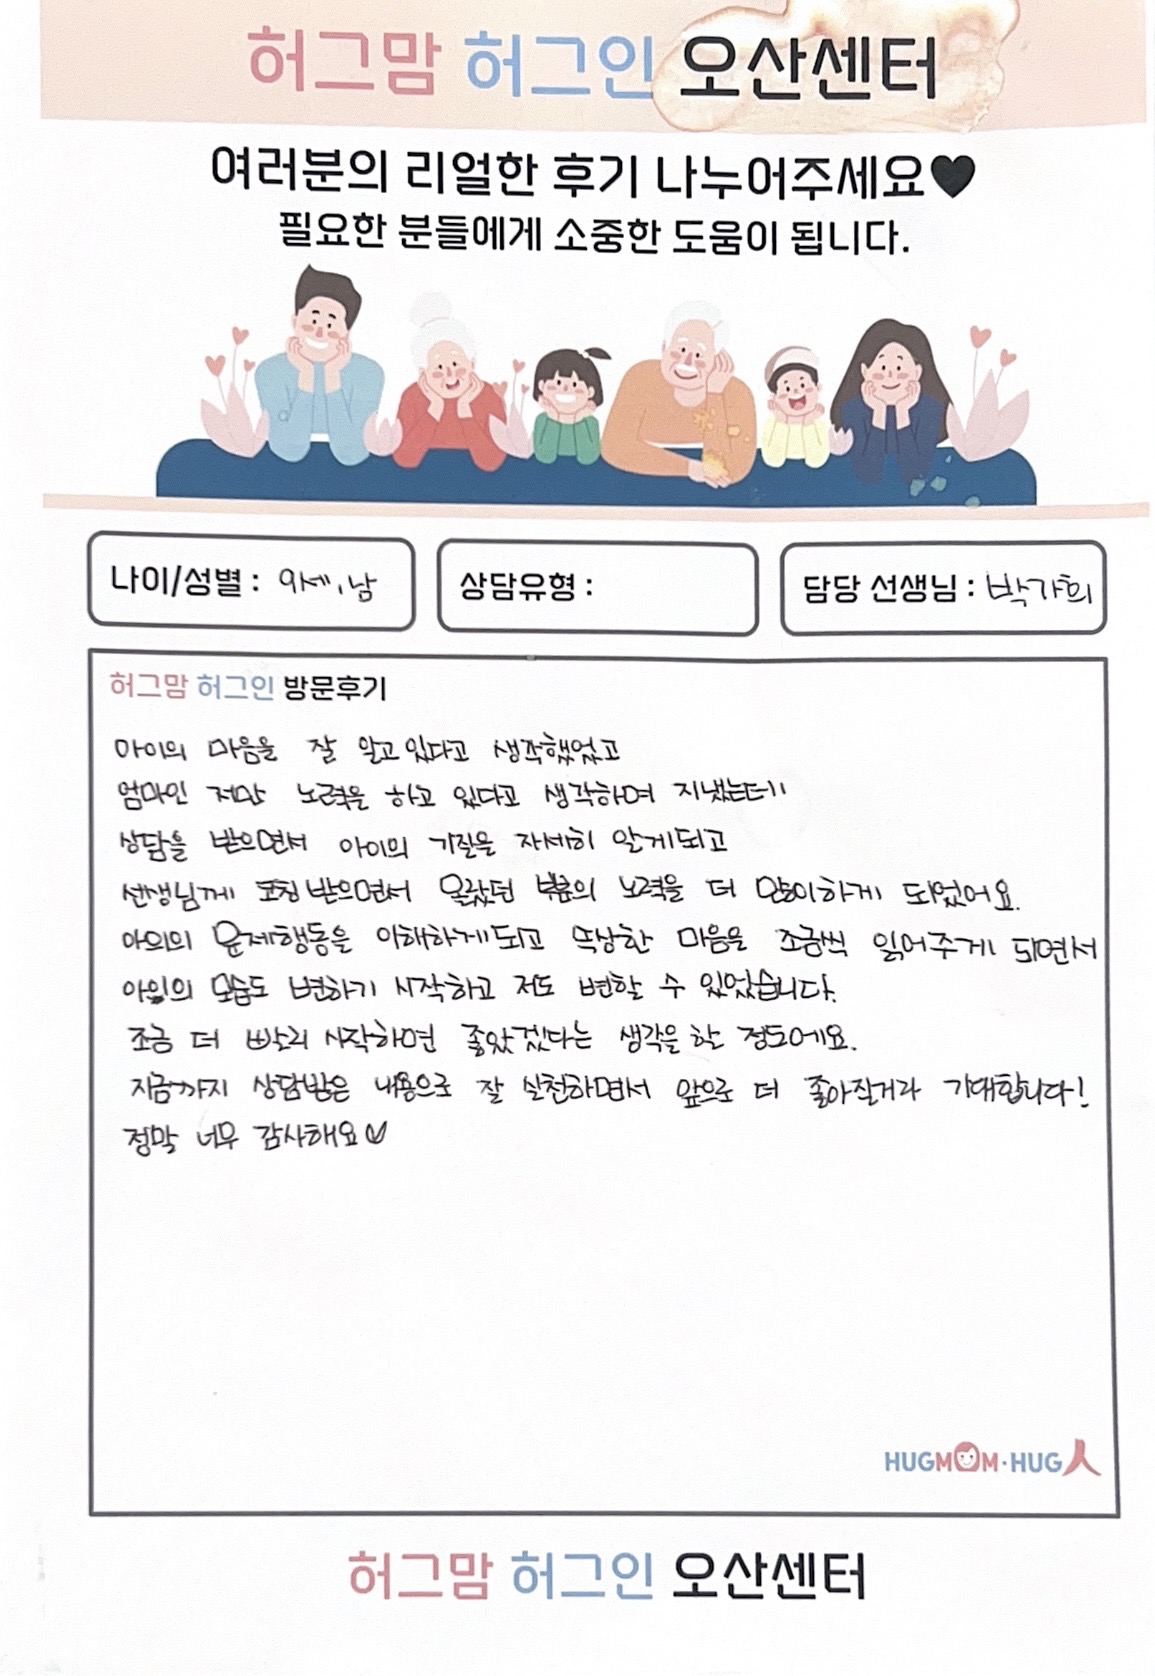 허그맘 허그인 오산센터
여러분의 리얼한 후기 나누어주세요♥
필요한 분들에게 소중한 도움이 됩니다.
나이/성별 : 9세, 남
상담유형 :
담당 선생님 : 박가희
허그맘 허그인 방문후기
아이의 마음을 잘 알고 있다고 생각했었고
엄마인 저만 노력을 하고 있다고 생각하며 지냈는데
상담을 받으면서 아이의 기질을 자세히 알게되고
선생님께 코칭 받으면서 몰랐던 부모의 노력을 더 많이하게 되었어요.
아이의 문제행동을 이해하게되고 속상한 마음을 조금씩 읽어주게 되면서
아이의 모습도 변하기 시작하고 저도 변할 수 있었습니다.
조금 더 빨리 시작하면 좋았겠다는 생각을 한 정도에요.
지금까지 상담받은 내용으로 잘 실천하면서 앞으로 더 좋아질거라 기대합니다!
정막 너무 감사해요♡
HUGMOM·HUG人
허그맘 허그인 오산센터